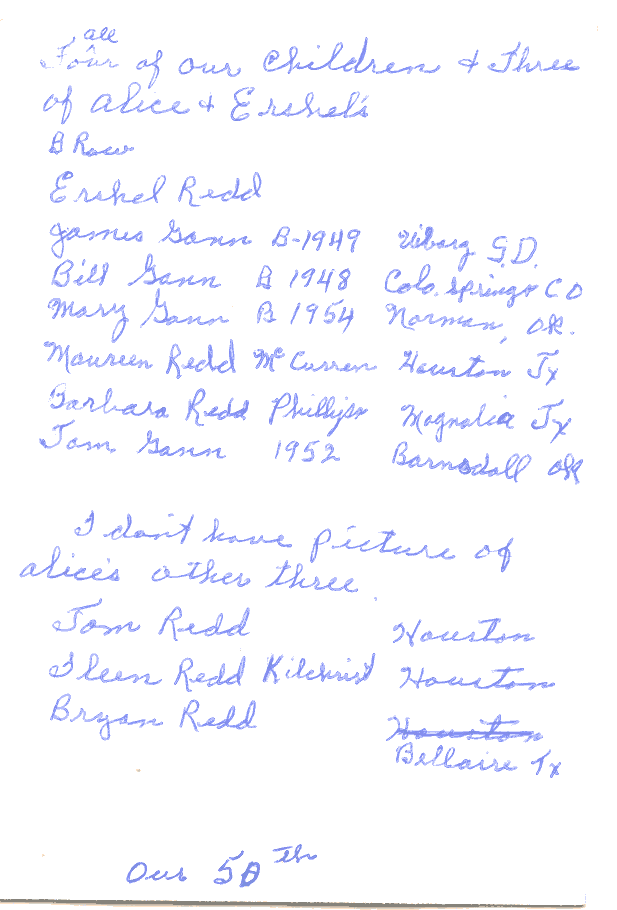 all
Four of our Children & Three
of Alice & Ershel's
B Row
Ershel Redd
James Gann B-1949 Viborg S.D.
Bill Gann B 1948 Colo. Springs CO
Mary Gann B 1954 Norman, OK.
Maureen Redd McCurren Houston Tx
Barbara Redd Phillips Magnolia Tx
Tom Gann 1952 Barnsdall OK
I don't have picture of
Alice's other three
Tom Redd Houston
Ileen Redd Kilchrist Houston
Bryan Redd Houston
Bellaire Tx
Our 50th